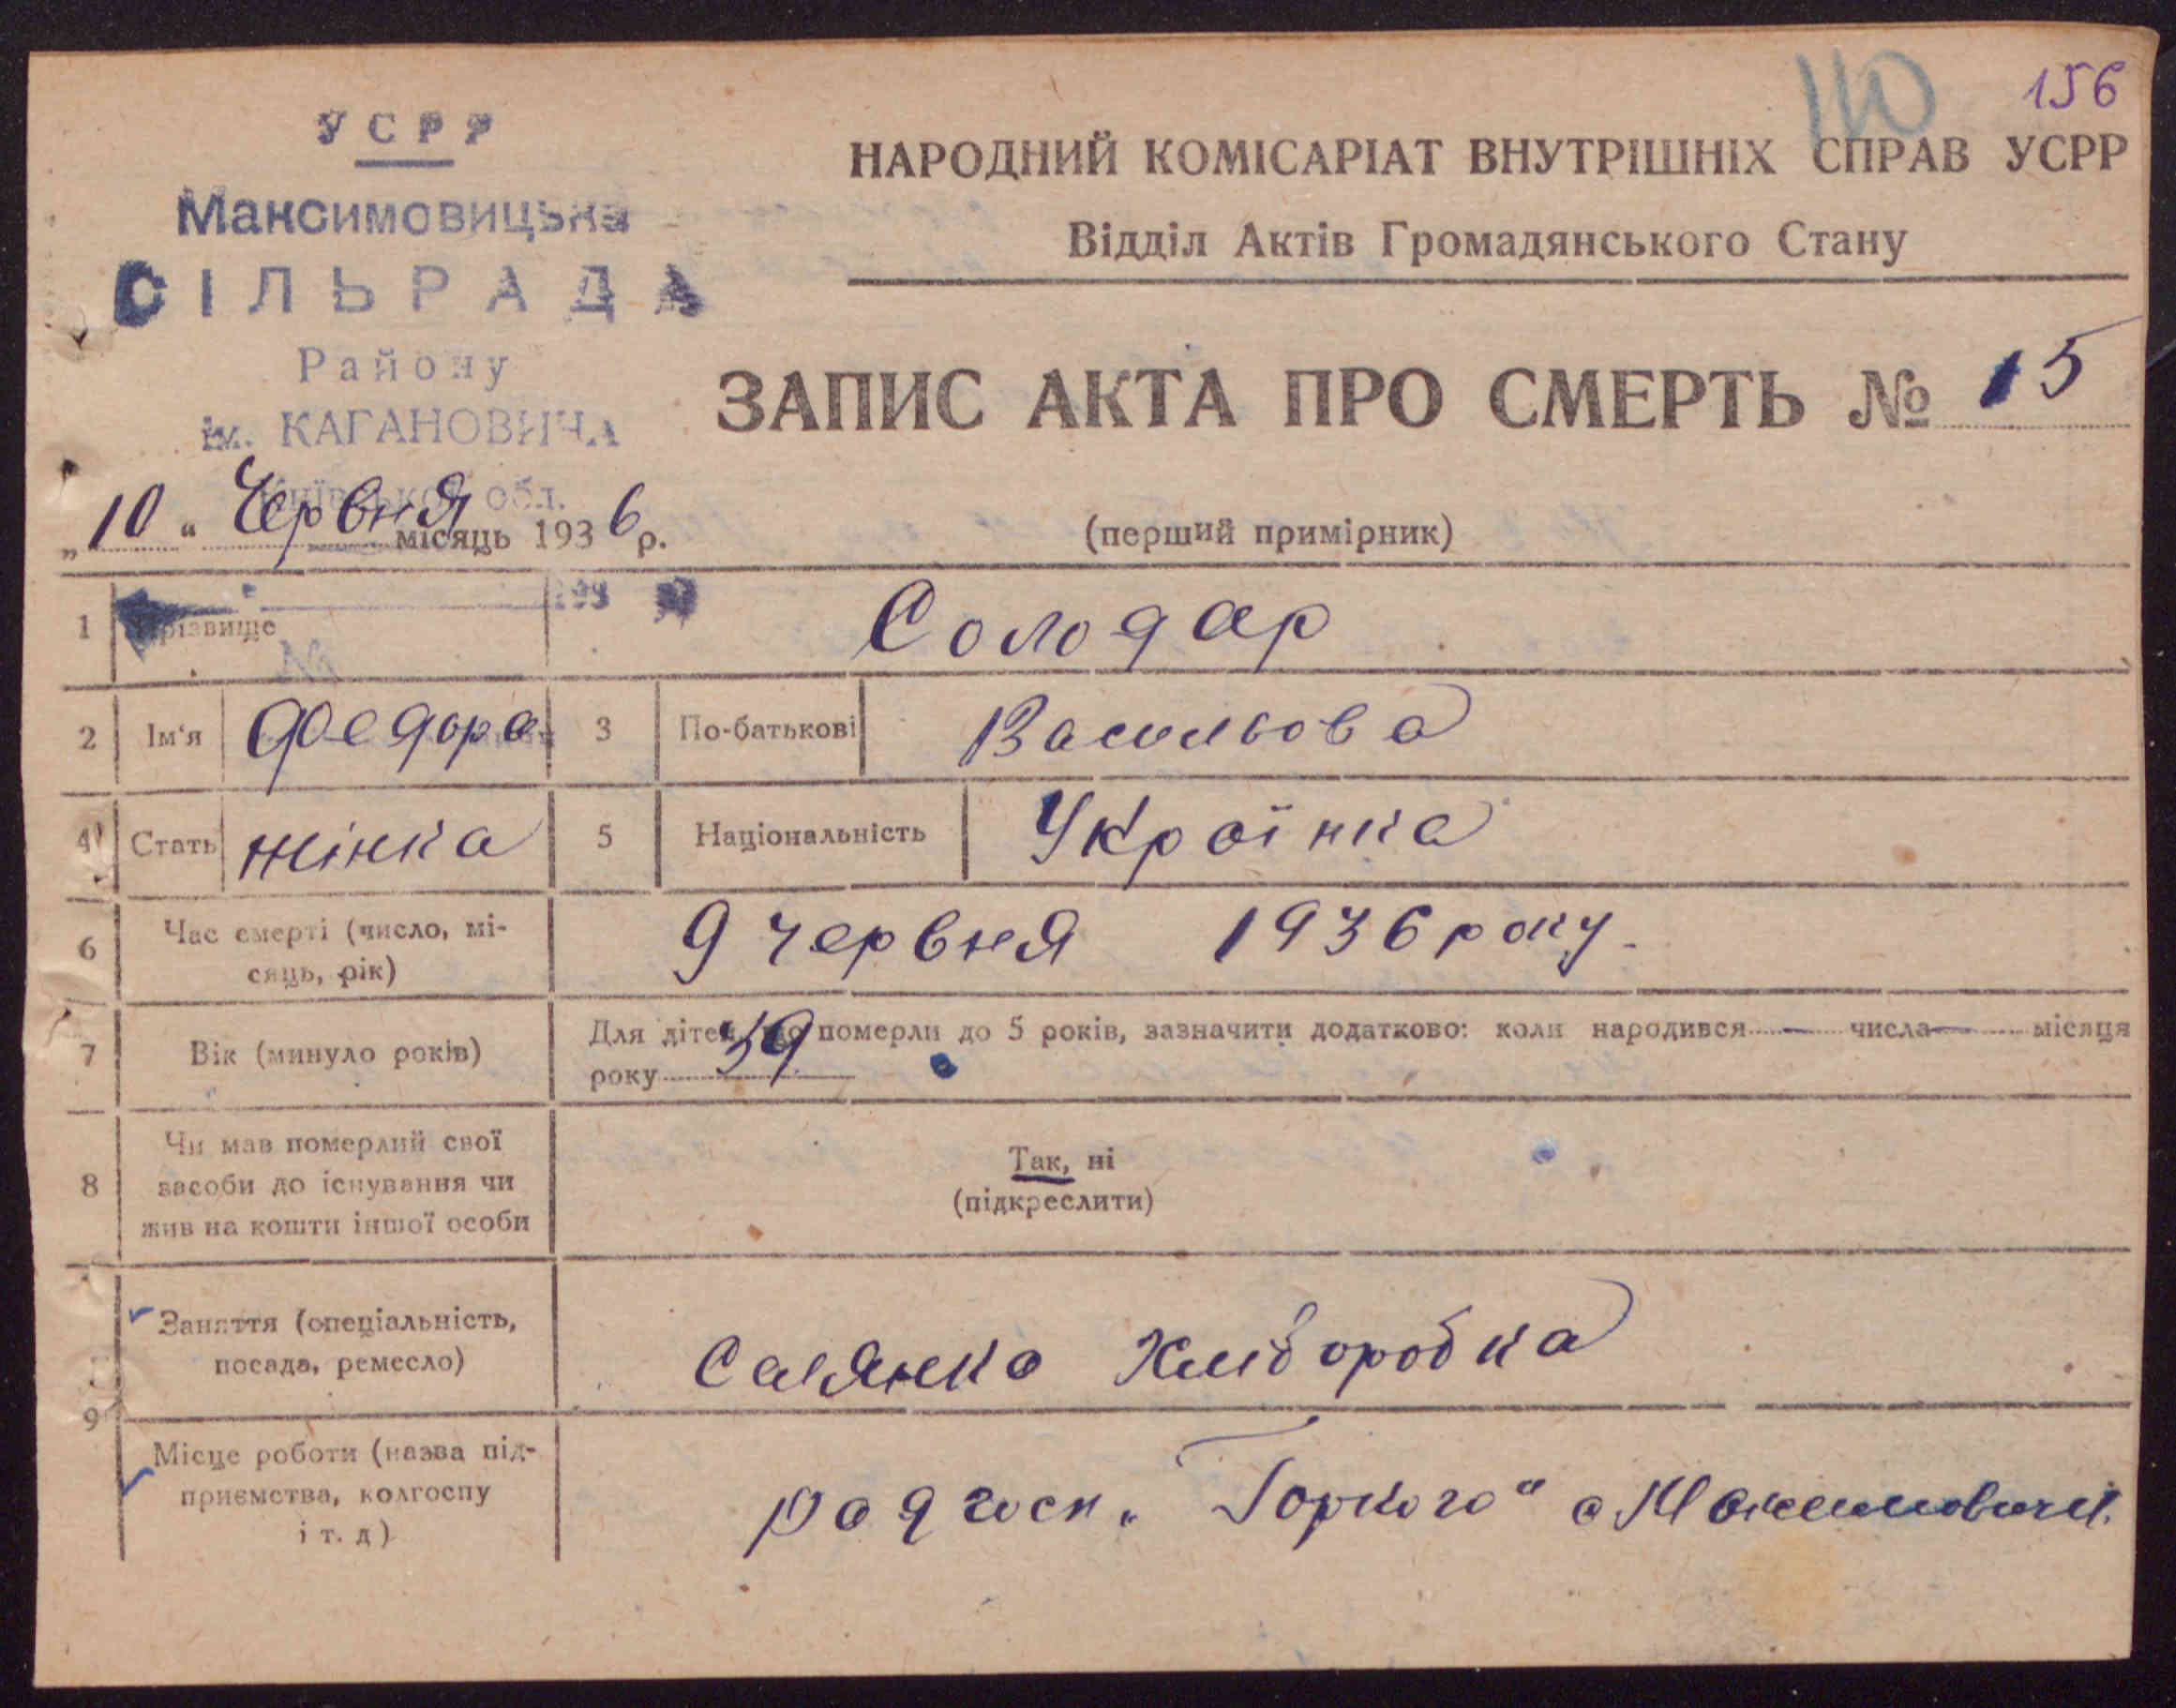 110 156
УСРР
Максимовицька
СІЛЬРАДА
Району
ім. КАГАНОВИЧА
Київської обл.
НАРОДНИЙ КОМІСАРІАТ ВНУТРІШНІХ СПРАВ УСРР
Відділ Актів Громадянського Стану
ЗАПИС АКТА ПРО СМЕРТЬ № 15
„10“ Червня місяць 1936 р.
(перший примірник)
193
1 Прізвище Солодар
№
2 Ім‘я Федора 3 По-батькові Васильова
4 Стать жінка 5 Національність Українка
6 Час смерті (число, мі-
сяць, рік) 9 червня 1936 року.
7 Вік (минуло років) Для дітей, що померли до 5 років, зазначити додатково: коли народився — числа — місяця
року 59
8 Чи мав померлий свої
засоби до існування чи
жив на кошти іншої особи
Так, ні
(підкреслити)
9 Заняття (спеціальність,
посада, ремесло) Селянка Хліборобка
Місце роботи (назва під-
приємства, колгоспу
і т. д)
радгосп. „Горкого“ с Максимовичі.